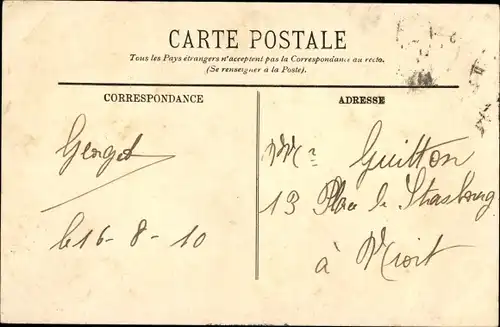 CARTE POSTALE
Tous les Pays étrangers n'acceptent pas la Correspondance au recto.
(Se renseigner à la Poste).
CORRESPONDANCE
ADRESSE
Georget
le 16 - 8 - 10
Guitton
13 Place de Strasbourg
à Niort